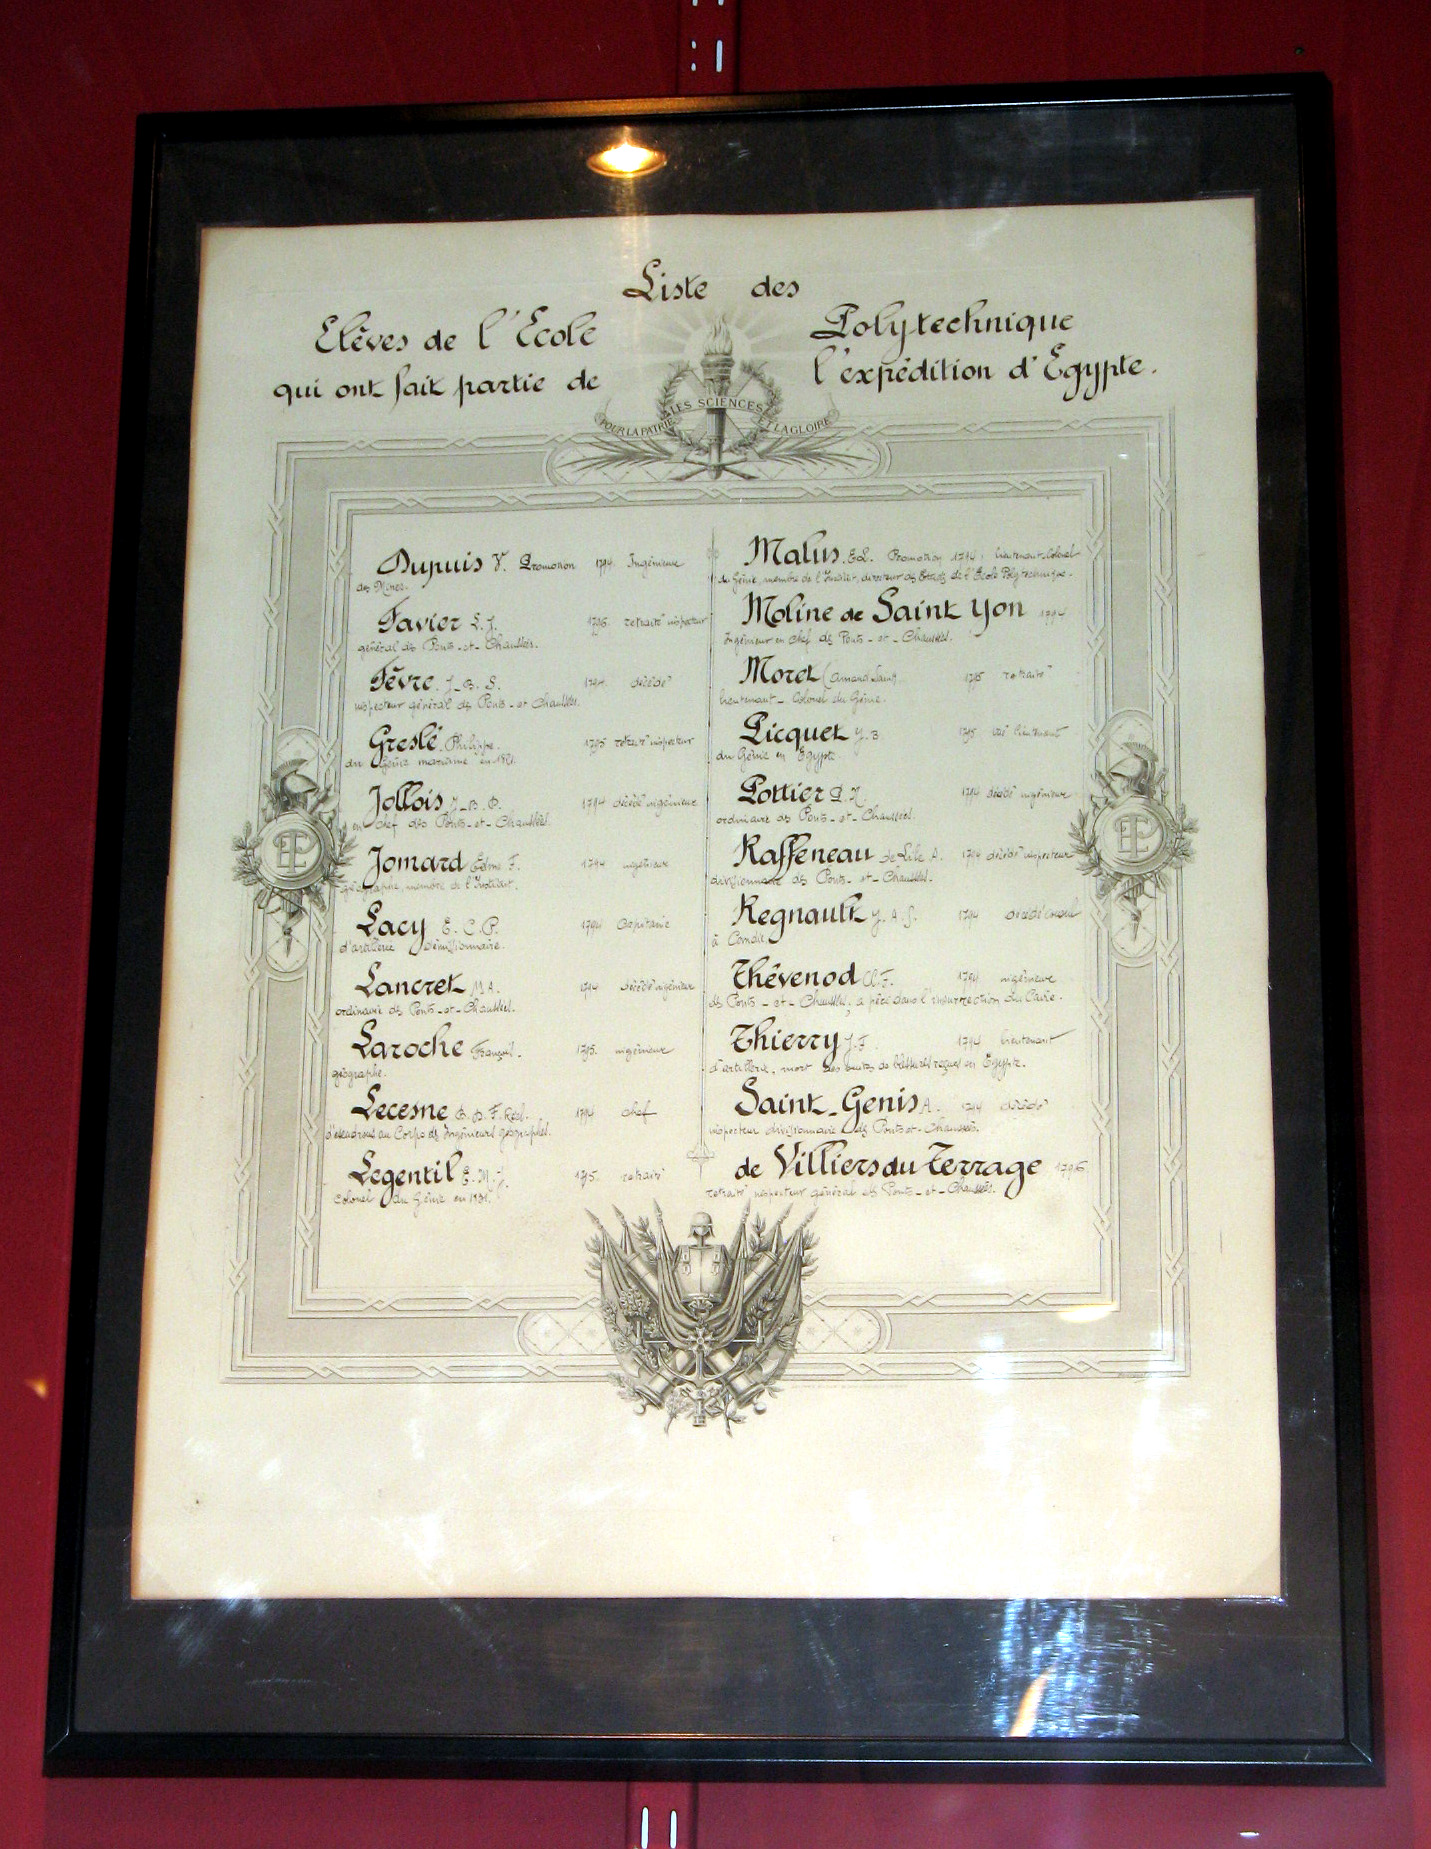 Liste des
Elèves de l'Ecole Polytechnique
qui ont fait partie de l'expédition d'Egypte.
POUR LA PATRIE LES SCIENCES ET LA GLOIRE
Dupuis V. Promotion 1794 Ingénieur
des Mines.
Favier L. J. 1796 retraité inspecteur
général des Ponts-et-Chaussées.
Fèvre J-B. S. 1794 décédé
inspecteur général des Ponts-et-Chaussées.
Greslé Philippe. 1795 retraité inspecteur
du Génie maritime en
Jollois J-B. P. 1794 décédé ingénieur
en chef des Ponts-et-Chaussées.
Jomard Edme F. 1794 ingénieur
géographe, membre de l'Institut.
Lacy E. C. P. 1794 Capitaine
d'artillerie démissionnaire.
Lancret M A. 1794 décédé ingénieur
ordinaire des Ponts-et-Chaussées.
Laroche François. 1795. ingénieur
géographe.
Lecesne 1794 chef
d'escadrons au Corps des Ingénieurs géographes.
Legentil E. M. 1795. retraité
Colonel du Génie en 1831.
Malus. Ed. Promotion 1794 lieutenant-Colonel
du Génie, membre de l'Institut, directeur des Etudes de l'Ecole Polytechnique.
Moline de Saint Yon 1794
Ingénieur en chef des Ponts-et-Chaussées.
Moret (Amand 1795 retraité
lieutenant-Colonel du Génie.
Picquet J. B 1795 lieutenant
du Génie en Egypte
Pottier 1794 décédé ingénieur
ordinaire des Ponts-et-Chaussées.
Raffeneau de Lile A. 1794 décédé inspecteur
divisionnaire des Ponts-et-Chaussées.
Regnault J. A. S. 1794 décédé Consul
à
Thévenod Cl. F. 1794 ingénieur
des Ponts-et-Chaussées, a péri dans l'insurrection du Caire.
Thierry J. F. 1794 lieutenant
d'artillerie, mort des suites de blessures reçues en Egypte.
Saint-Genis A. 1794 décédé
inspecteur divisionnaire des Ponts-et-Chaussées.
de Villiers du Terrage 1796.
retraité inspecteur général des Ponts-et-Chaussées.